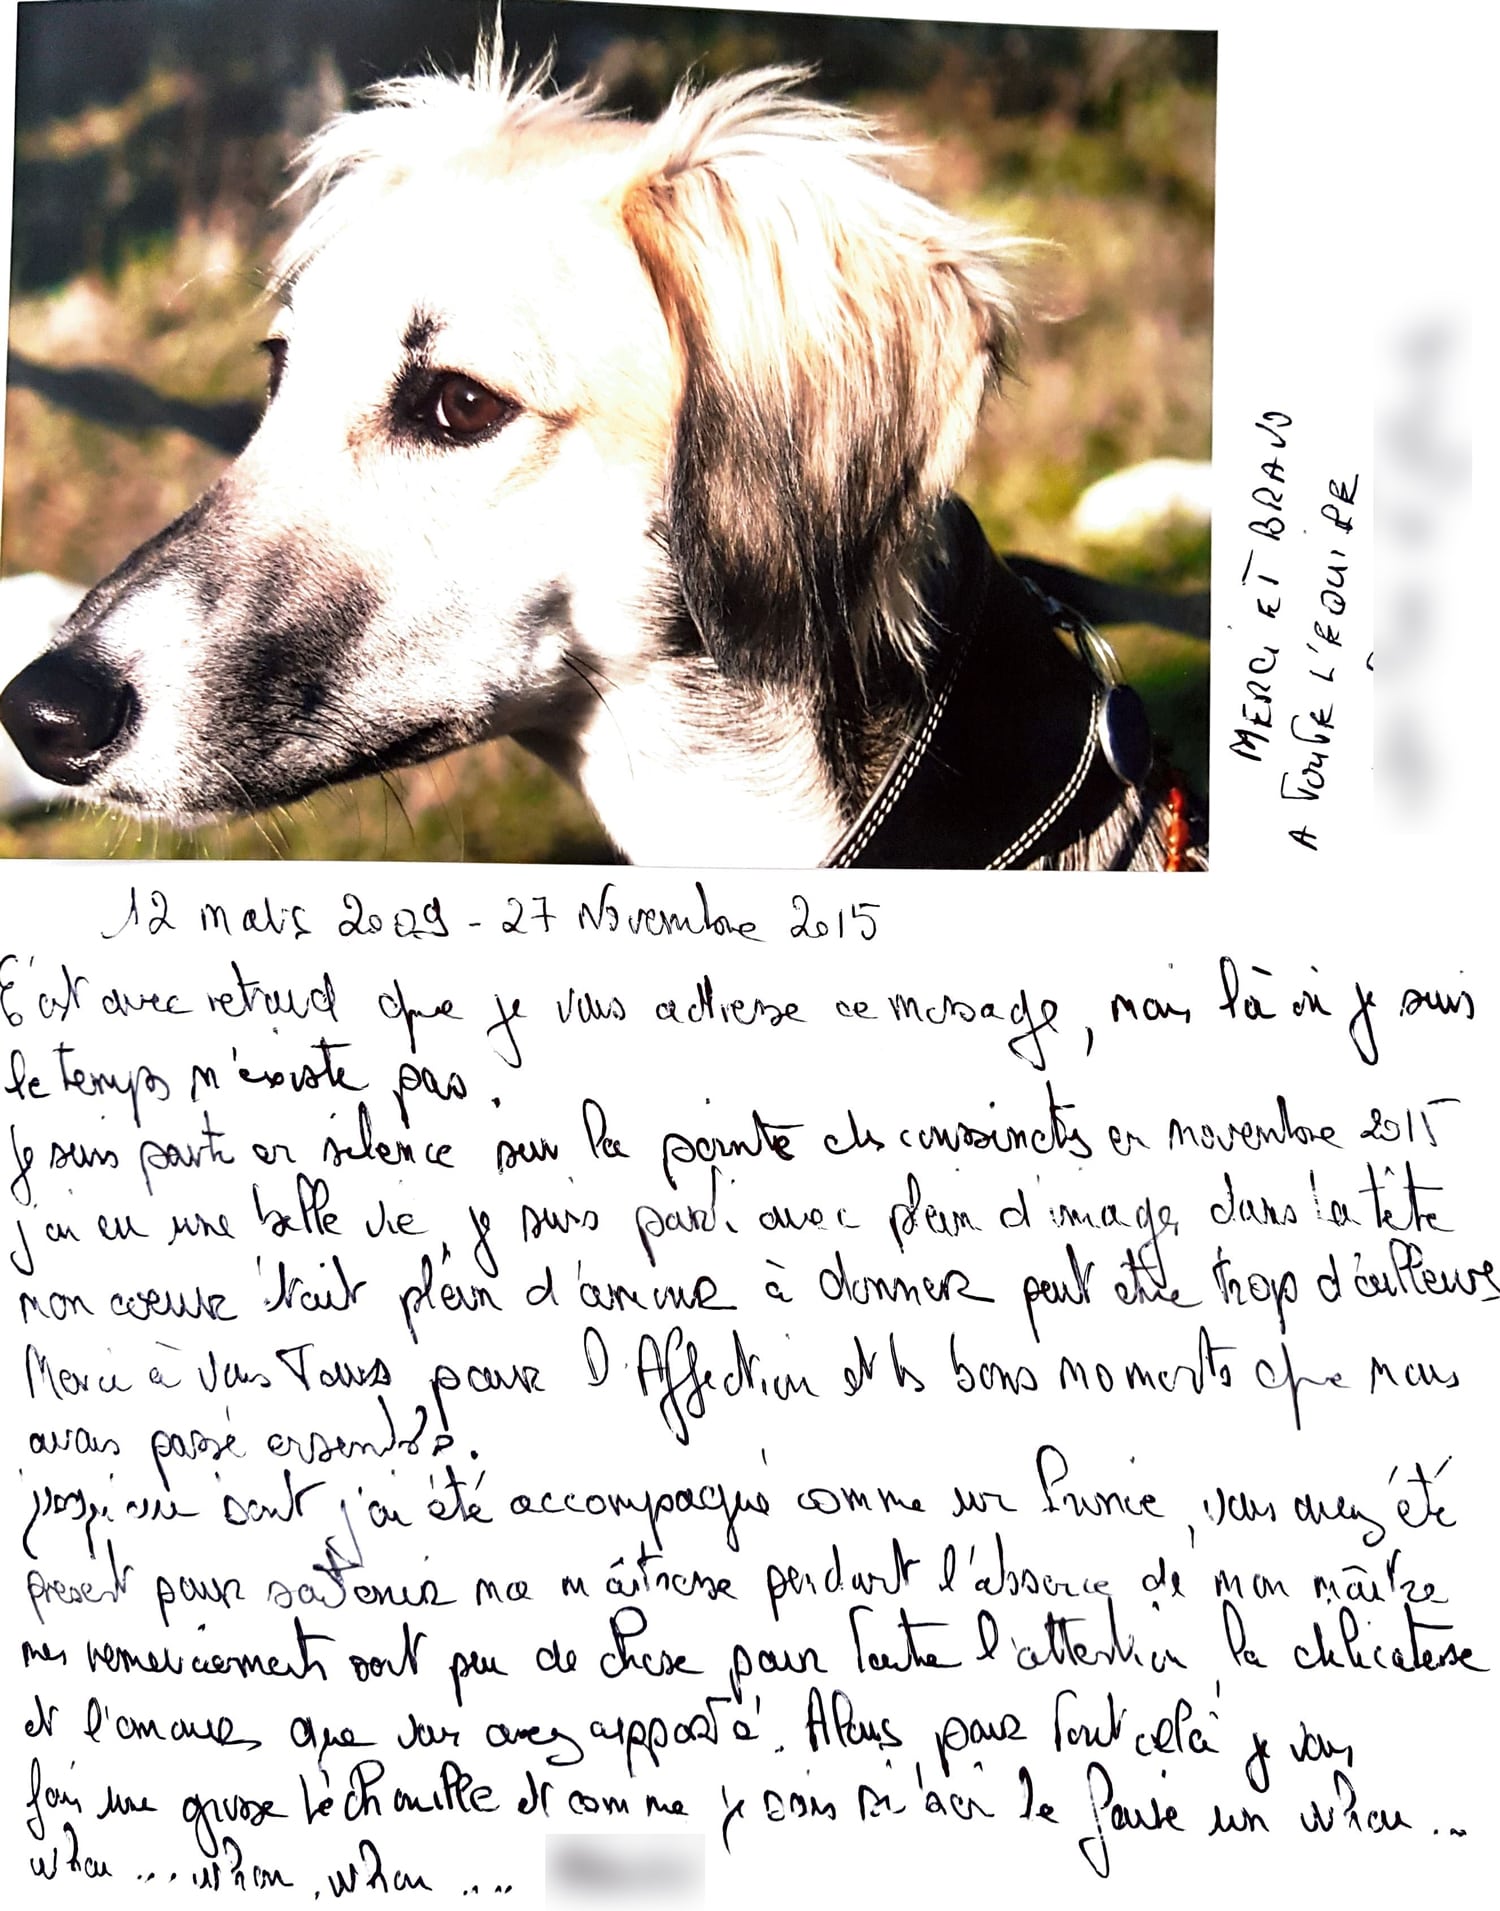 MERCI ET BRAVO
A TOUTE L'EQUIPE
12 mars 2009 - 27 Novembre 2015
C'est avec retard que je vous adresse ce message, mais là où je suis
le temps n'existe pas.
Je suis parti en silence sur la pointe des coussinets en novembre 2015
j'ai eu une belle vie, je suis parti avec plein d'image dans la tête
mon coeur était plein d'amour à donner peut être trop d'ailleurs
Merci à vous Tous pour l'Affection et les bons moments que nous
avons passé ensembles.
dont j'ai été accompagné comme un Prince, vous avez été
présent pour soutenir ma maîtresse pendant l'absence de mon maître
mes remerciements sont peu de chose pour toute l'attention la délicatesse
et l'amour que vous avez apporté. Alors pour tout celà je vous
fais une grosse léchouille et comme je sais si bien le faire un whou...
whou ... whou, whou ....